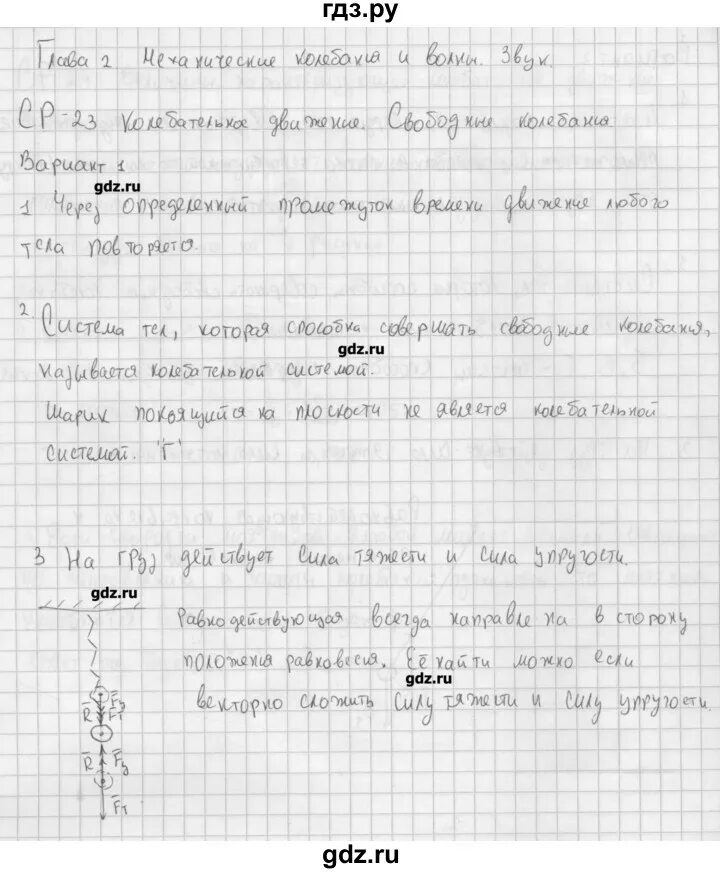 гдз.ру
Глава 2 Механические колебания и волны. Звук.
СР-23 Колебательное движение. Свободные колебания
Вариант 1
gdz.ru
1 Через определенный промежуток времени движение любого
тела повторяется.
2. Система тел, которая способна совершать свободные колебания,
gdz.ru
называется колебательной системой.
Шарик покоящийся на плоскости не является колебательной
системой. "Г"
3 На груз действует сила тяжести и сила упругости.
gdz.ru
Равнодействующая всегда направлена в сторону
положения равновесия. Её найти можно если
gdz.ru
векторно сложить силу тяжести и силу упругости.
Fу
R Fт
R Fу
Fт
gdz.ru